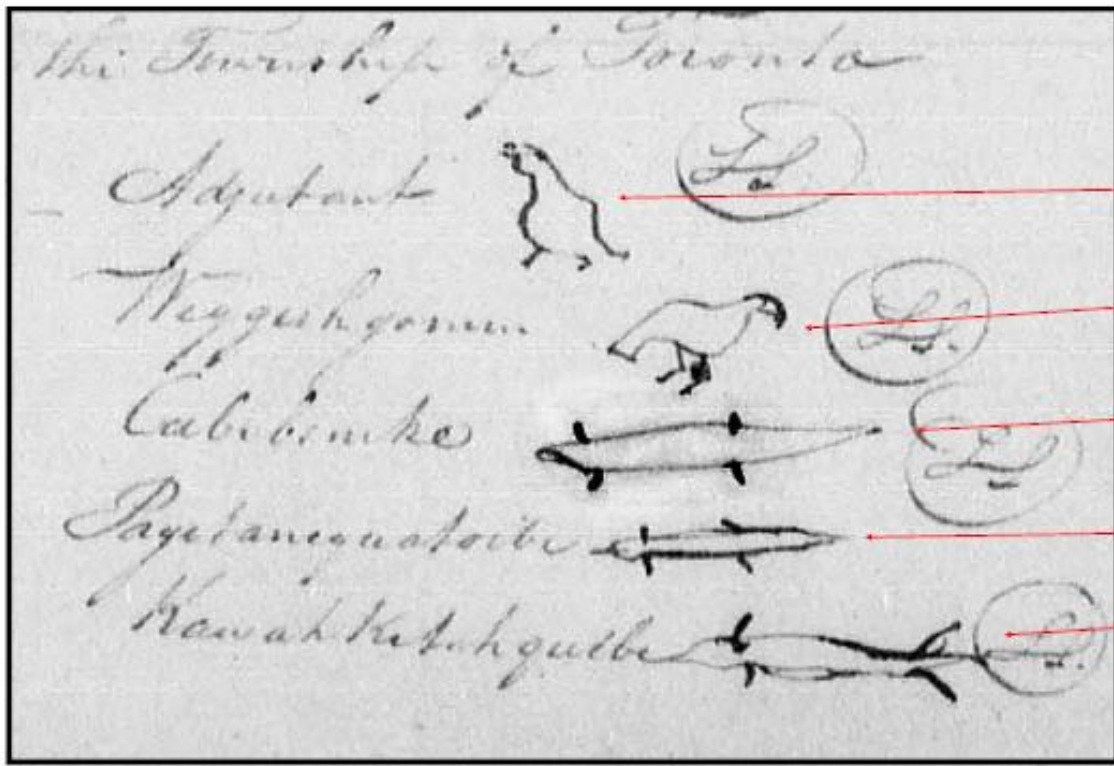 the Township of Toronto
Adjutant LS
Weggishgomin LS
Cabibonike LS
Pagitaniquatoibe
Kawahkitahquibe LS